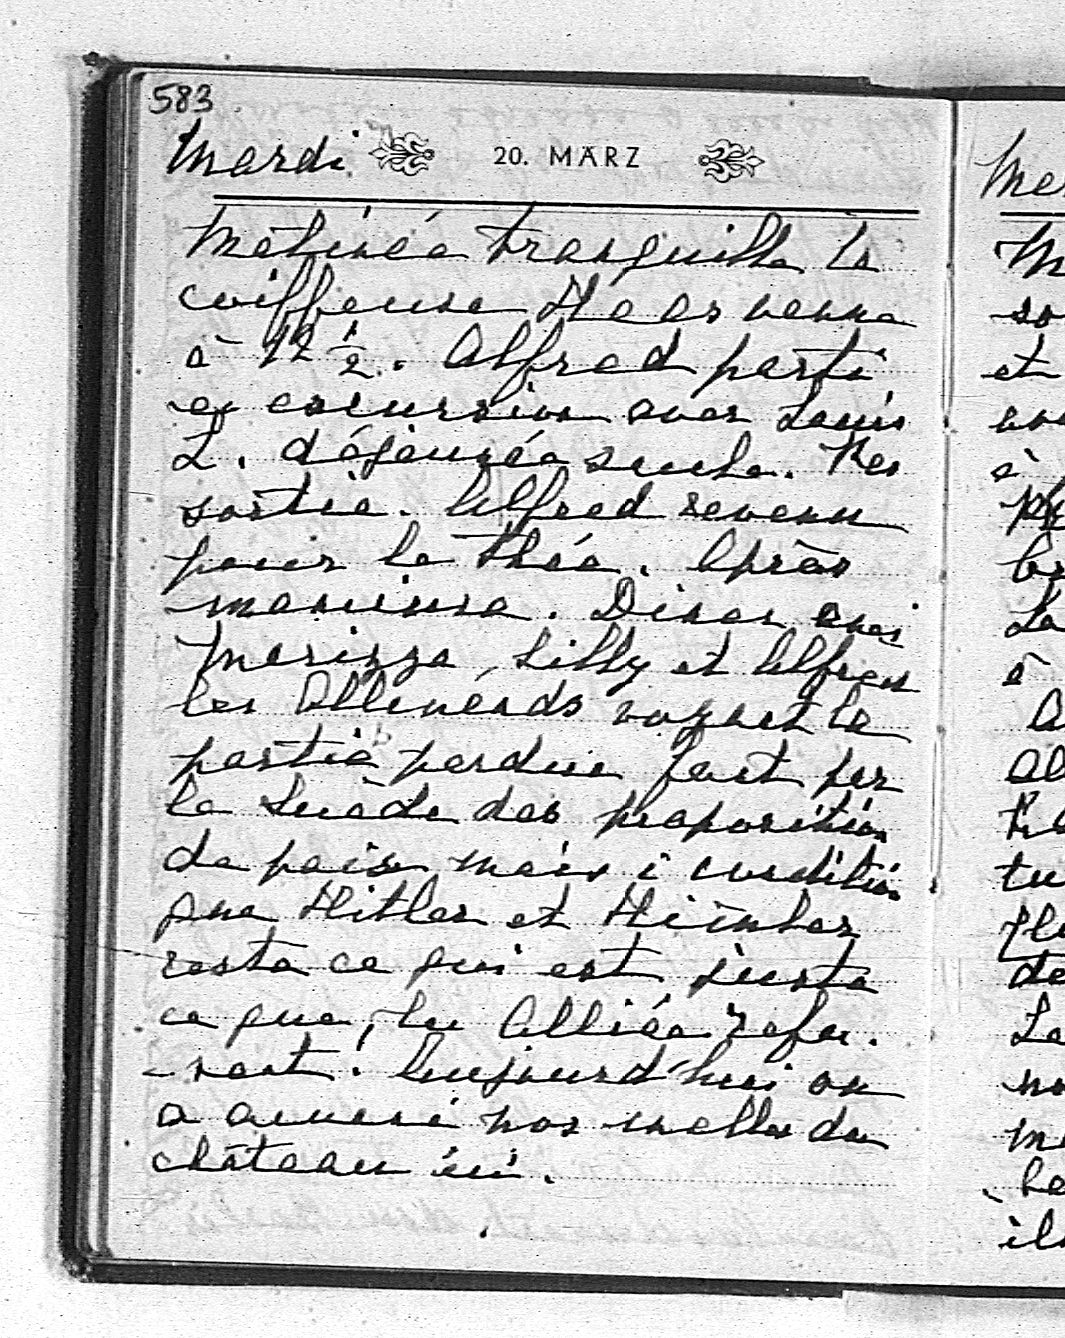 583
Mardi 20. MÄRZ
Matinée tranquille la
coiffeuse Haas venue
à 12 1/2. Alfred parti
en excursion avec Louis
L. déjeunée seule. Pas
sortie. Alfred revenu
pour le thé. Après
manicure. Diner avec
Marizza, Lilly et Alfred
les Allemands voyant la
partie perdue font par
la Suède des propositions
de paix mais à condition
que Hitler et Himler
reste ce qui est juste
ce que, les Alliés refu-
sent. Aujourd'hui on
a amené nos malles du
château ici.
Me
M
so
et
à
La
à
A
Al
tu
de
La
no
ma
il